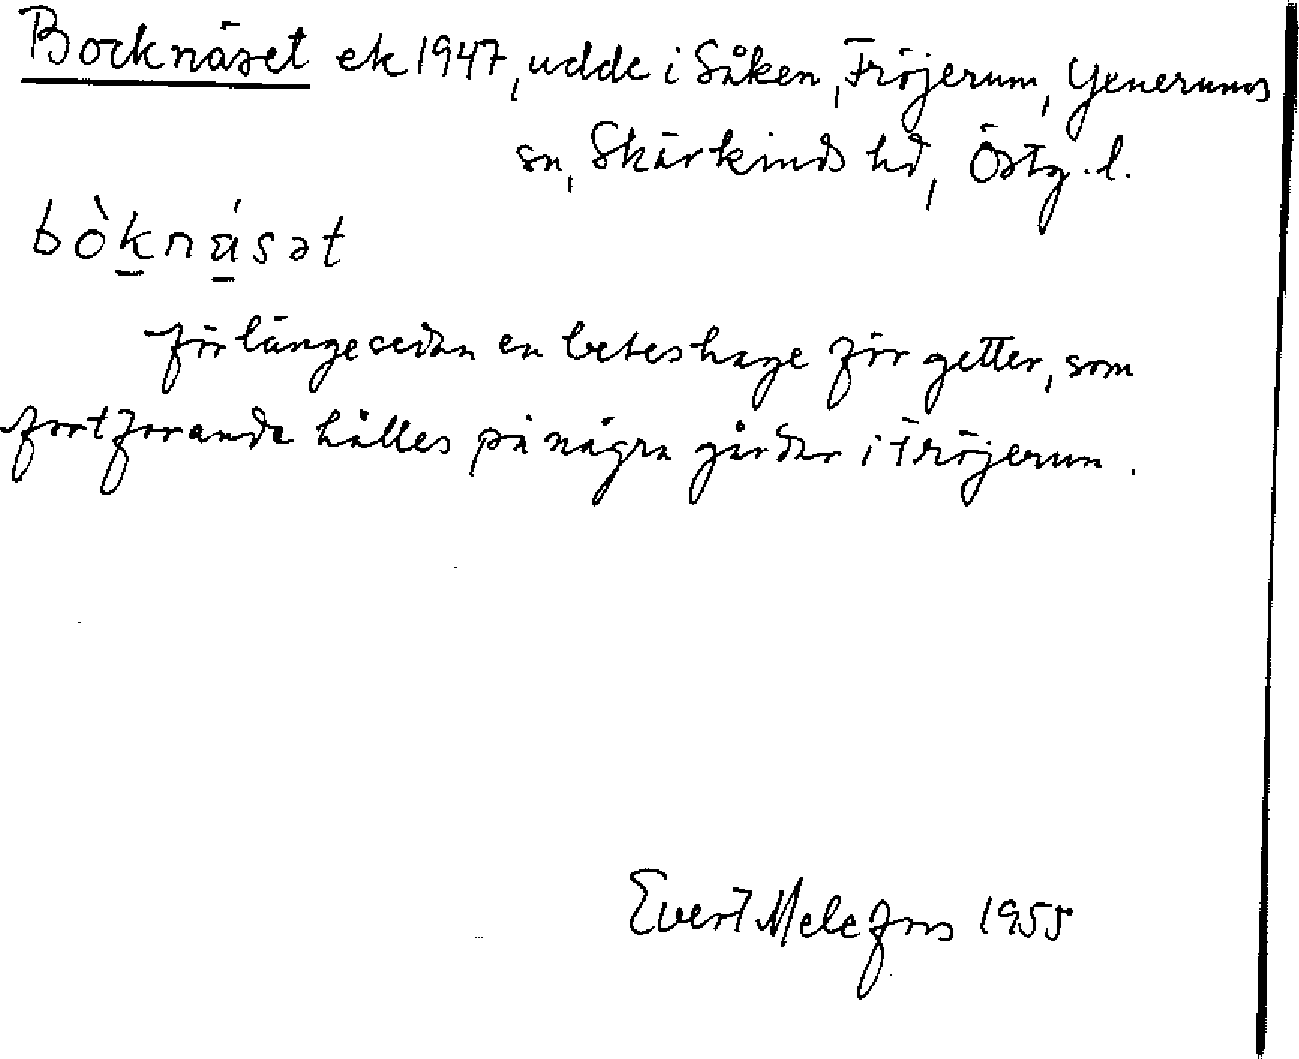 Bocknäset ek 1947, udde i Såken, Fröjerum, Yxnerums
sn, Skärkinds hd, Östg.l.
bòknä́sət
för länge sedan en beteshage för getter, som
fortfarande hålles på några gårdar i Fröjerum.
Evert Melefors 1955